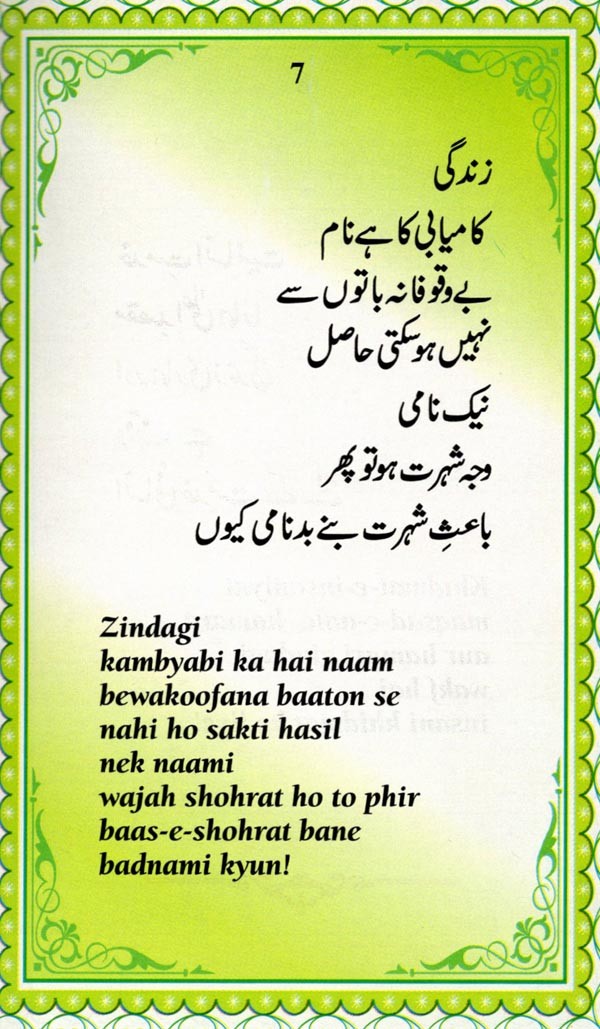 7
زندگی
کامیابی کا ہے نام
بے وقوفانہ باتوں سے
نہیں ہو سکتی حاصل
نیک نامی
وجہ شہرت ہو تو پھر
باعثِ شہرت بنے بدنامی کیوں
Zindagi
kambyabi ka hai naam
bewakoofana baaton se
nahi ho sakti hasil
nek naami
wajah shohrat ho to phir
baas-e-shohrat bane
badnami kyun!